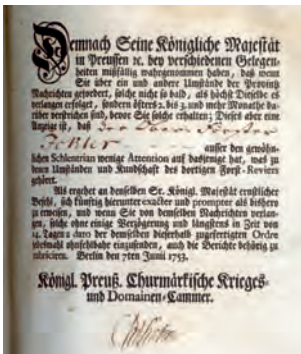 Demnach Seine Königliche Majestät
in Preussen ꝛc. bey verschiedenen Gelegen-
heiten mißfällig wahrgenommen haben, daß wenn
Sie über ein und andere Umstände der Provintz
Nachrichten gefordert, solche nicht so bald, als höchst Dieselbe es
verlangen erfolget, sondern öfters 2. bis 3. und mehr Monathe da-
rüber verstrichen sind, bevor Sie solche erhalten; Dieses aber eine
Anzeige ist, daß der
ausser den gewöhn-
lichen Schlentrian wenige Attention auf dasjenige hat, was zu
denen Umständen und Kundschaft des dortigen Forst-Reviers
gehöret.
Als ergehet an denselben Sr. Königl. Majestät ernstlicher
Befehl, sich künftig hierunter exacter und prompter als bißhero
zu erweisen, und wenn Sie von demselben Nachrichten verlan-
gen, solche ohne einige Verzögerung und längstens in Zeit von
14. Tagen a dato der demselben dieserhalb zugefertigten Ordre
jedesmahl ohnfehlbahr einzusenden, auch die Berichte behörig zu
rubriciren. Berlin den 7ten Junii 1753.
Königl. Preuß. Churmärkische Krieges-
und Domainen-Cammer.